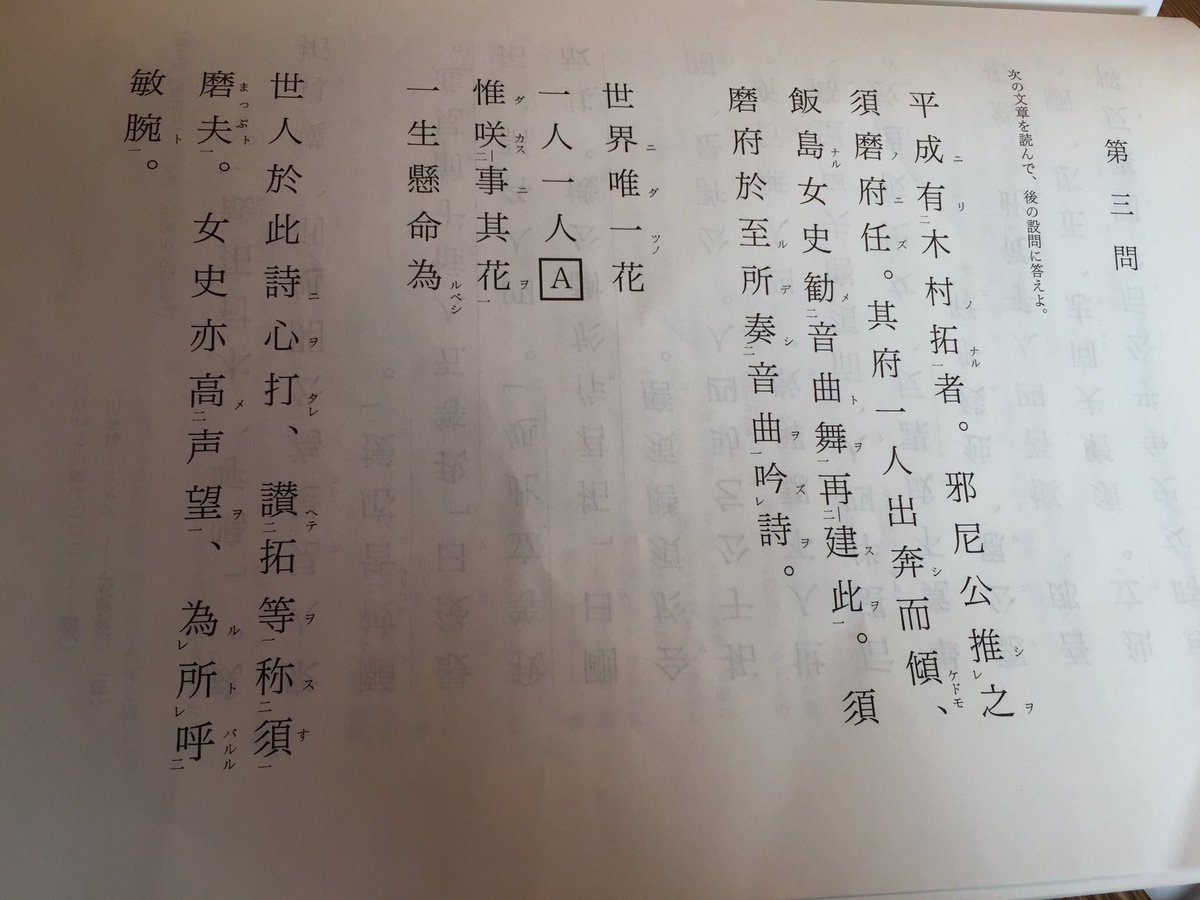 第三問
次の文章を読んで、後の設問に答えよ。
平成有木村拓者。邪尼公推之
須磨府任。其府一人出奔而傾、
飯島女史勧音曲舞再建此。須
磨府於至所奏音曲吟詩。
世界唯一花
一人一人A
惟咲事其花
一生懸命為
世人於此詩心打、讃拓等称須
磨夫。女史亦高声望、為所呼
敏腕。